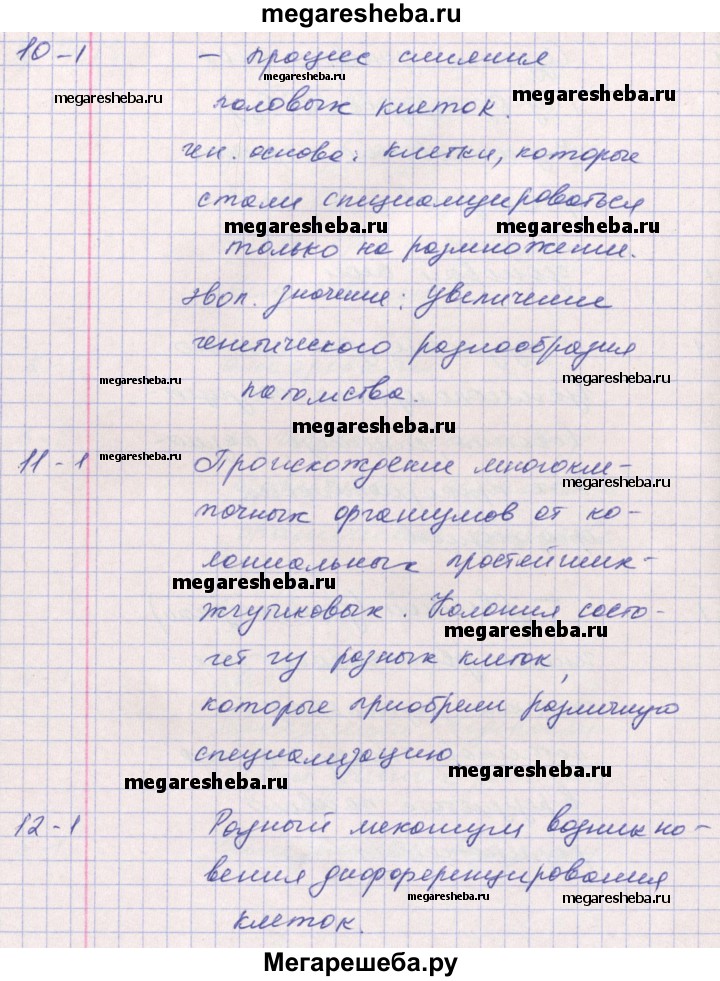 megaresheba.ru
10-1 – процесс слияния
megaresheba.ru
megaresheba.ru
megaresheba.ru
половых клеток.
ген. основа: клетки, которые
стали специализироваться
megaresheba.ru
megaresheba.ru
только на размножении.
эвол. значение: увеличение
генетического разнообразия
megaresheba.ru
megaresheba.ru
потомства.
megaresheba.ru
11-1 megaresheba.ru Происхождение многокле-
megaresheba.ru
точных организмов от ко-
лониальных простейших-
megaresheba.ru
жгутиковых. Колония состо-
megaresheba.ru
ет из разных клеток,
которые приобрели различную
специализацию
megaresheba.ru
megaresheba.ru
12-1 Разный механизм возникно-
вения дифференцирования
megaresheba.ru
megaresheba.ru
клеток.
Мегарешеба.ру